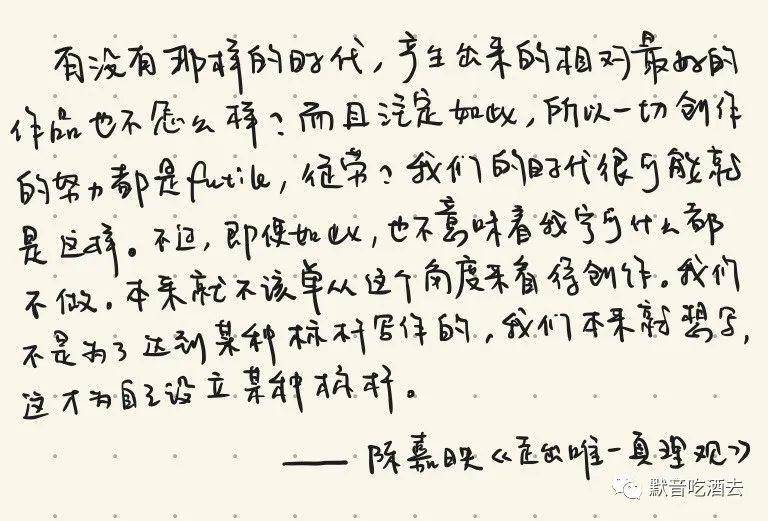 有没有那样的时代，产生出来的相对最好的
作品也不怎么样？而且注定如此，所以一切创作
的努力都是futile，徒劳？我们的时代很可能就
是这样。不过，即便如此，也不意味着我宁可什么都
不做。本来就不该单从这个角度来看待创作。我们
不是为了达到某种标杆写作的，我们本来就想写，
这才为自己设立某种标杆。
—— 陈嘉映《走出唯一真理观》
默音吃酒去